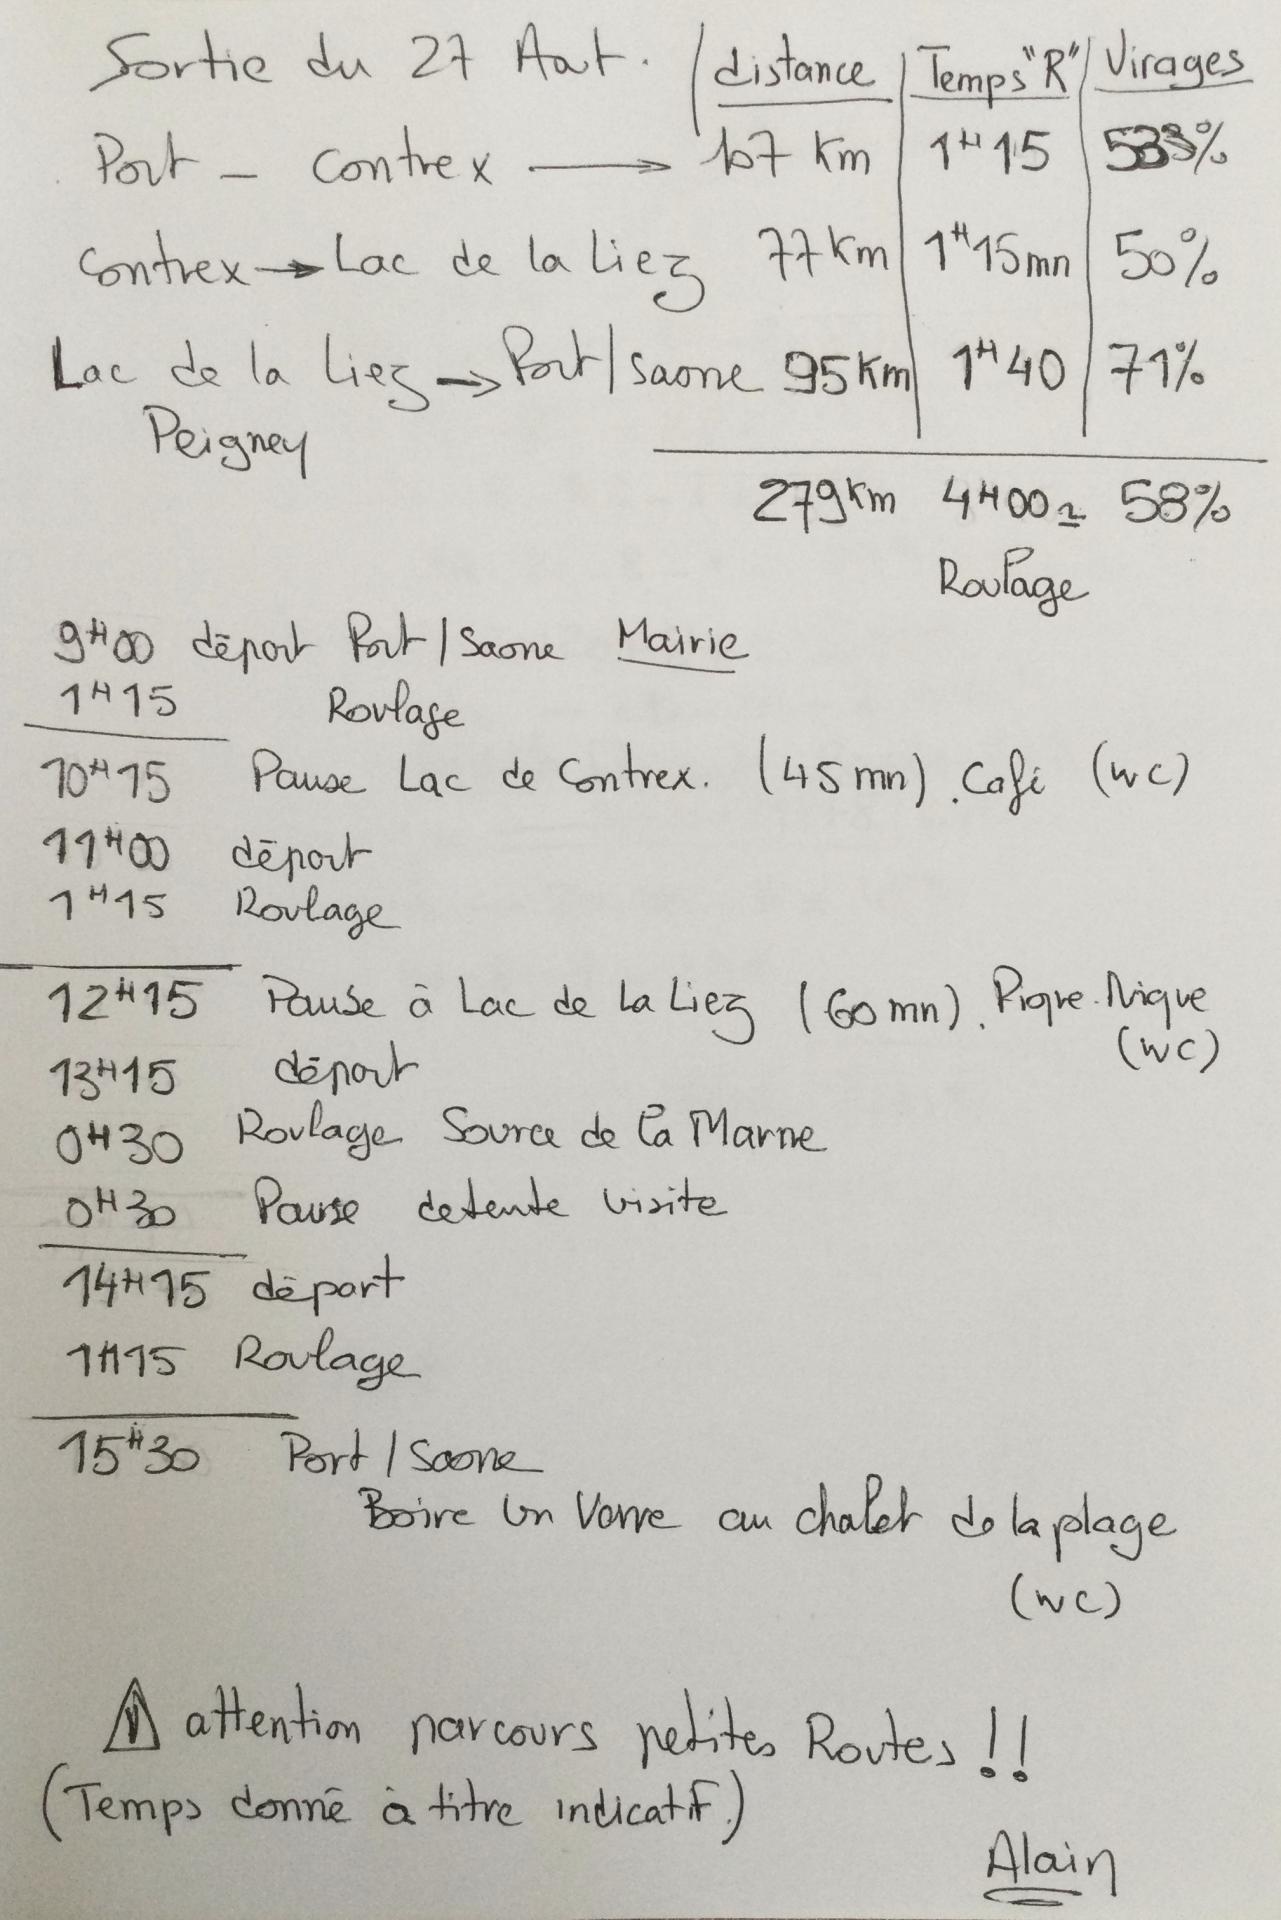 Sortie du 27 Aout. distance Temps "R" Virages
Port - Contrex → 107 Km 1H15 53%
Contrex → Lac de la Liez 77 Km 1H15mn 50%
Lac de la Liez → Port/Saone 95 Km 1H40 71%
Peigney
279 Km 4H00 ≃ 58%
Roulage
9H00 départ Port/Saone Mairie
1H15 Roulage
10H15 Pause Lac de Contrex. (45 mn). Café (WC)
11H00 départ
1H15 Roulage
12H15 Pause à Lac de La Liez (60 mn). Pique-Nique
(WC)
13H15 départ
0H30 Roulage Source de la Marne
0H30 Pause detente visite
14H15 départ
1H15 Roulage
15H30 Port/Saone
Boire un Verre au chalet de la plage
(WC)
⚠ attention parcours petites Routes !!
(Temps donné à titre indicatif.)
Alain